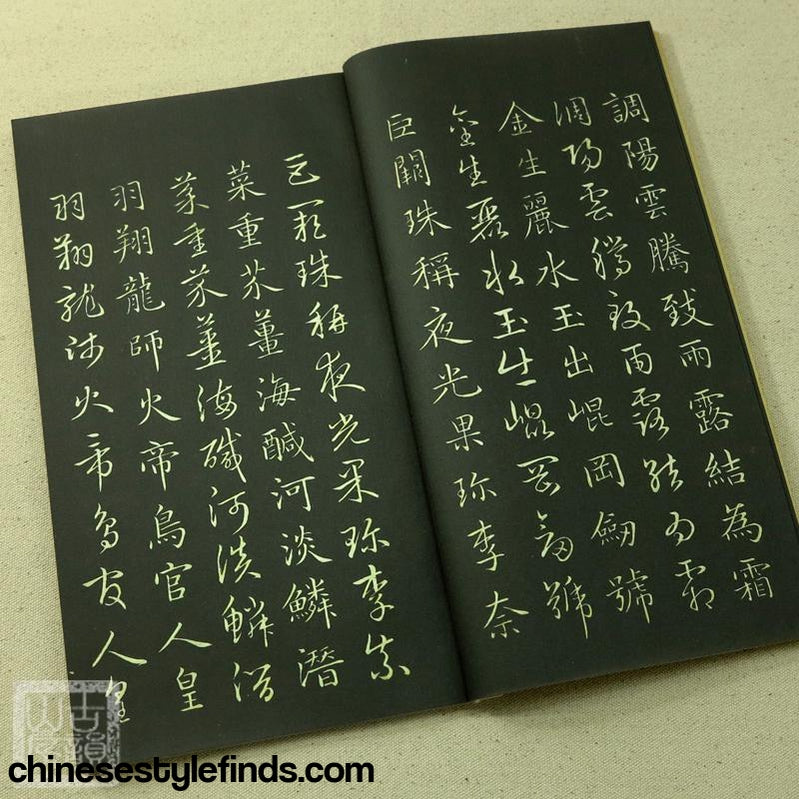 調陽雲騰致雨露結為霜
調陽雲騰致雨露結為霜
金生麗水玉出崐岡劒號
金生麗水玉出崐岡劒號
巨闕珠稱夜光果珍李柰
巨闕珠稱夜光果珍李柰
菜重芥薑海醎河淡鱗潛
菜重芥薑海醎河淡鱗潛
羽翔龍師火帝鳥官人皇
羽翔龍師火帝鳥官人皇
chinesestylefinds.com